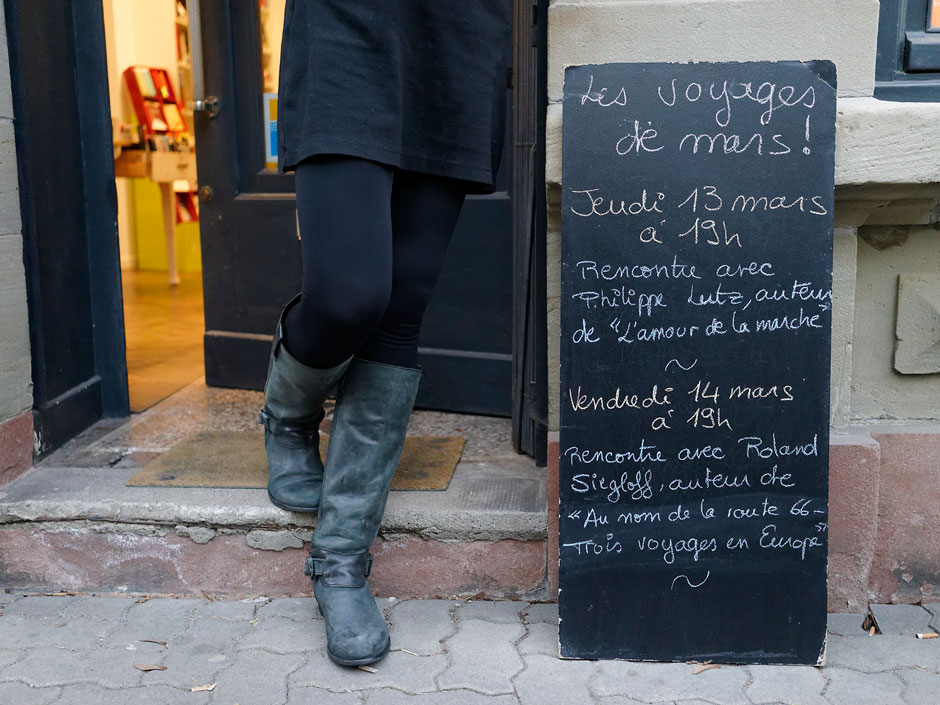 Les voyages
de mars !
Jeudi 13 mars
à 19h
Rencontre avec
Philippe Lutz, auteur
de "L'amour de la marche"
~
Vendredi 14 mars
à 19h
Rencontre avec Roland
Siegloff, auteur de
"Au nom de la route 66 -
Trois voyages en Europe"
~